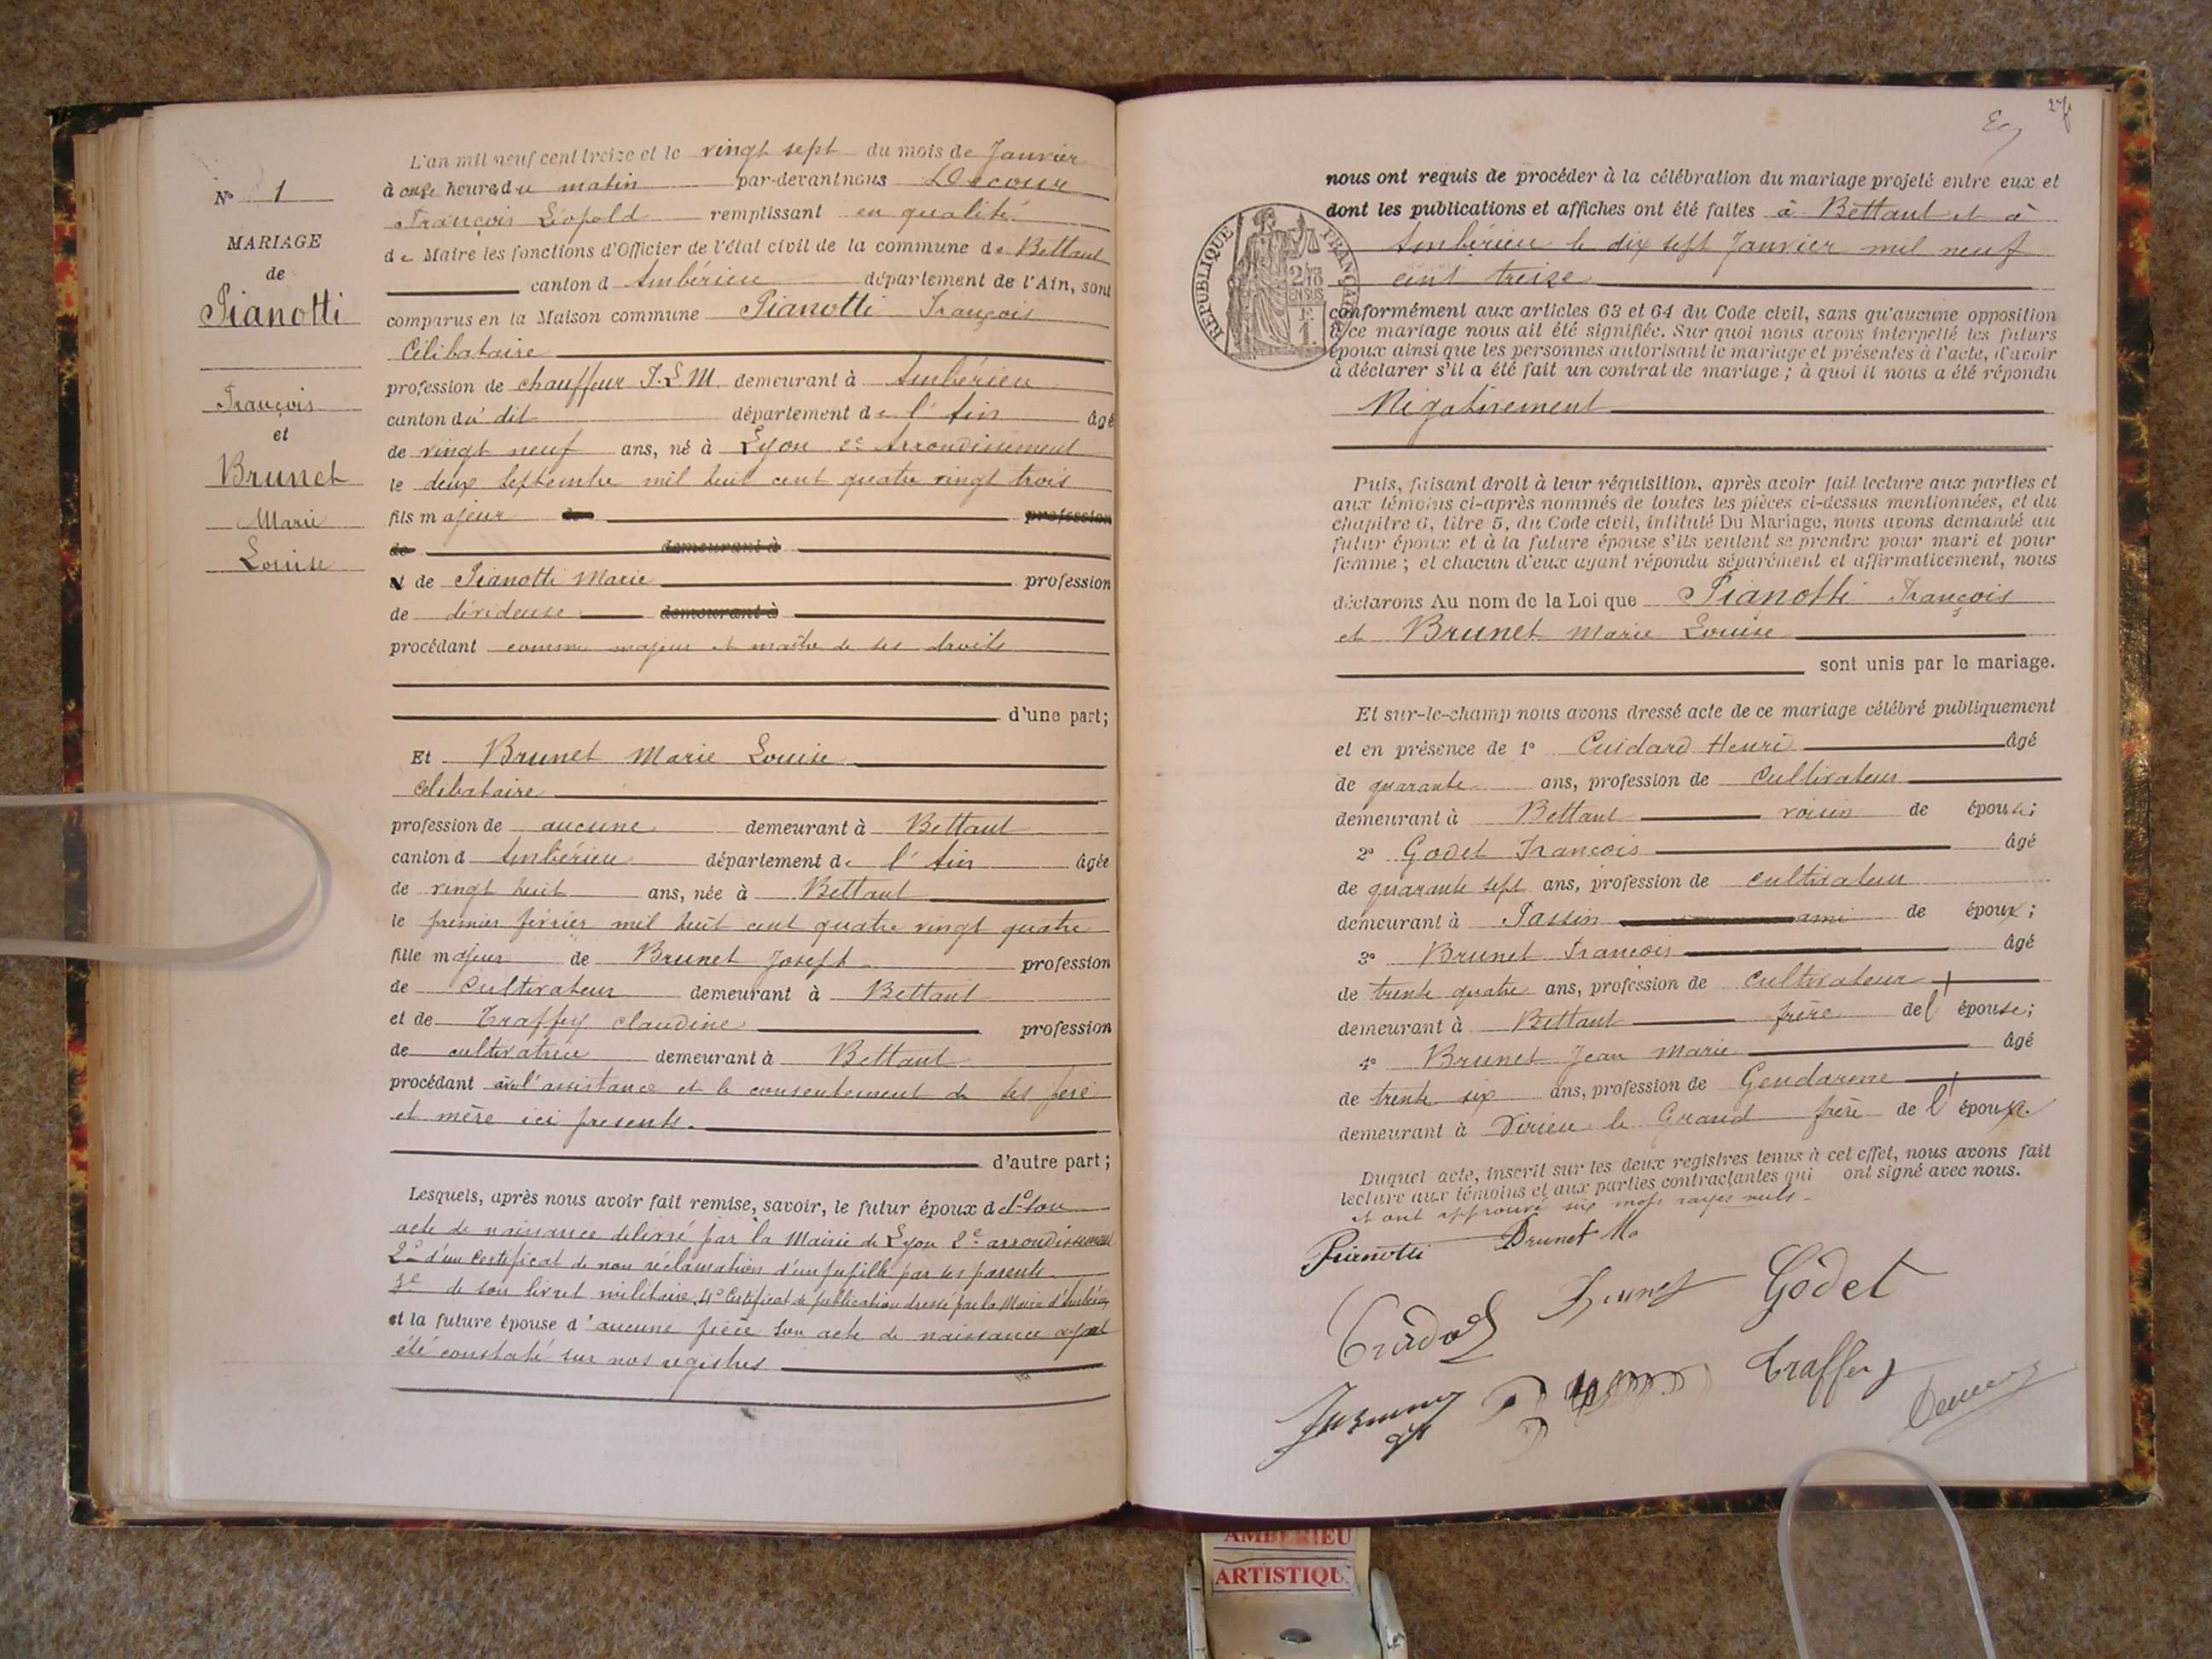 N° 1
MARIAGE
de
Pianotti
François
et
Brunet
Marie
Louise
L'an mil neuf cent treize et le vingt sept du mois de Janvier
à onze heures du matin par-devant nous Decour
François Léopold remplissant en qualité
de Maire les fonctions d'Officier de l'état civil de la commune de Bettant
canton d Ambérieu département de l'Ain, sont
comparus en la Maison commune Pianotti François
Célibataire
profession de chauffeur P.L.M. demeurant à Ambérieu
canton du dit département de l'Ain âgé
de vingt neuf ans, né à Lyon 2e Arrondissement
le deux Septembre mil huit cent quatre vingt trois
fils majeur de profession
de demeurant à
et de Pianotti Marie profession
de dévideuse demeurant à
procédant comme majeur et maître de ses droits
d'une part;
Et Brunet Marie Louise
célibataire
profession de aucune demeurant à Bettant
canton d Ambérieu département de l'Ain âgée
de vingt huit ans, née à Bettant
le premier février mil huit cent quatre vingt quatre
fille majeur de Brunet Joseph profession
de Cultivateur demeurant à Bettant
et de Traffey claudine profession
de cultivatrice demeurant à Bettant
procédant avec l'assistance et le consentement de ses père
et mère ici presents.
d'autre part;
Lesquels, après nous avoir fait remise, savoir, le futur époux de 1° son
acte de naissance délivré par la Mairie de Lyon 2e arrondissement
2° d'un Certificat de non réclamation d'un pupille par ses parents
3e de son livret militaire, 4° Certificat de publication dressé par la Mairie d'Ambérieu
et la future épouse d'aucune pièce son acte de naissance ayant
été constaté sur nos registres
nous ont requis de procéder à la célébration du mariage projeté entre eux et
dont les publications et affiches ont été faites à Bettant et à
Ambérieu le dix sept Janvier mil neuf
cent treize
RÉPUBLIQUE FRANÇAISE
2/10
EN SUS
1 F.
conformément aux articles 63 et 64 du Code civil, sans qu'aucune opposition
à ce mariage nous ait été signifiée. Sur quoi nous avons interpellé les futurs
époux ainsi que les personnes autorisant le mariage et présentes à l'acte, d'avoir
à déclarer s'il a été fait un contrat de mariage ; à quoi il nous a été répondu
Négativement
Puis, faisant droit à leur réquisition, après avoir fait lecture aux parties et
aux témoins ci-après nommés de toutes les pièces ci-dessus mentionnées, et du
chapitre 6, titre 5, du Code civil, intitulé Du Mariage, nous avons demandé au
futur époux et à la future épouse s'ils veulent se prendre pour mari et pour
femme ; et chacun d'eux ayant répondu séparément et affirmativement, nous
déclarons Au nom de la Loi que Pianotti François
et Brunet Marie Louise
sont unis par le mariage.
Et sur-le-champ nous avons dressé acte de ce mariage célébré publiquement
et en présence de 1° Cuidard Henri âgé
de quarante ans, profession de Cultivateur
demeurant à Bettant voisin de épouse;
2° Godet François âgé
de quarante sept ans, profession de cultivateur
demeurant à Passin ami de époux;
3° Brunet François âgé
de trente quatre ans, profession de Cultivateur
demeurant à Bettant frère de l'épouse;
4° Brunet Jean Marie âgé
de trente six ans, profession de Gendarme
demeurant à Virieu le Grand frère de l'époux.
Duquel acte, inscrit sur les deux registres tenus à cet effet, nous avons fait
lecture aux témoins et aux parties contractantes qui ont signé avec nous.
et ont approuvé six mots rayés nuls.
Pianotti Brunet Ma
Brunet Godet
Traffey
AMBERIEU
ARTISTIQU